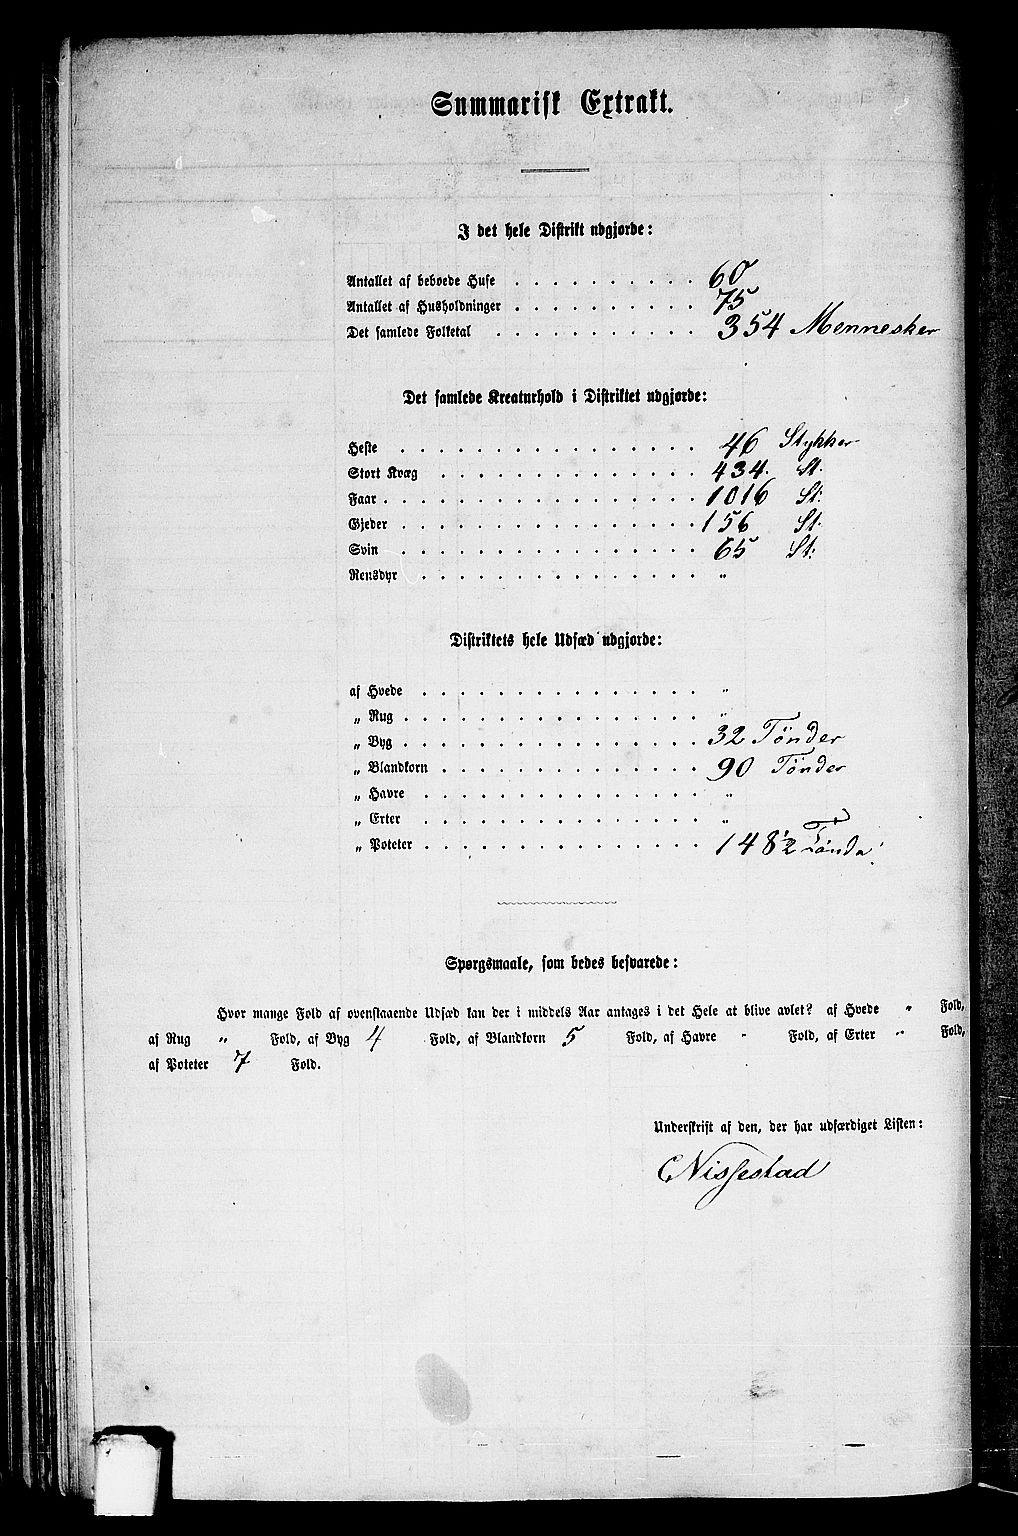 Summarisk Extrakt.
I det hele Distrikt udgjorde:
Antallet af beboede Huse . . . . . . . . . . 60
Antallet af Husholdninger . . . . . . . . . . 75
Det samlede Folketal . . . . . . . . . . . 354 Mennesker
Det samlede Kreaturhold i Distriktet udgjorde:
Heste . . . . . . . . . . . . . . . . 46 Stykker
Stort Kvæg . . . . . . . . . . . . . . 434. St.
Faar . . . . . . . . . . . . . . . . . 1016 St.
Gjeder . . . . . . . . . . . . . . . . 156 St.
Svin . . . . . . . . . . . . . . . . 65 St.
Rensdyr . . . . . . . . . . . . . . . "
Distriktets hele Udsæd udgjorde:
af Hvede . . . . . . . . . . . . . . . "
„ Rug . . . . . . . . . . . . . . . . "
„ Byg . . . . . . . . . . . . . . . . 32 Tønder
„ Blandkorn . . . . . . . . . . . . . 90 Tønder
„ Havre . . . . . . . . . . . . . . . "
„ Erter . . . . . . . . . . . . . . . "
„ Poteter . . . . . . . . . . . . . . 148½ Tønder
Spørgsmaale, som bedes besvarede:
Hvor mange Fold af ovenstaaende Udsæd kan der i middels Aar antages i det Hele at blive avlet? af Hvede " Fold,
af Rug " Fold, af Byg 4 Fold, af Blandkorn 5 Fold, af Havre " Fold, af Erter " Fold,
af Poteter 7 Fold.
Underskrift af den, der har udfærdiget Listen:
Nissestad